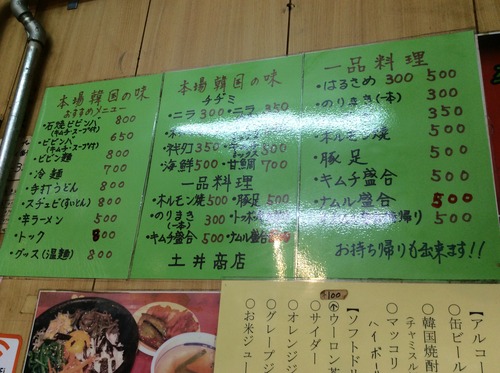 本場韓国の味
おすすめメニュー
・石焼ビビンバ 800
(キムチ・スープ付)
・ビビンバ 650
(キムチ・スープ付)
・ビビン麺 800
・冷麺 700
・手打うどん 800
・スヂェビ(すいとん) 800
・辛ラーメン 500
・トック 800
・グッス(温麺) 800
本場韓国の味
チヂミ
・ニラ 300
・ニラ 350
500
350
・海鮮 500
・甘鯛 700
一品料理
・ホルモン焼 500
・豚足 500
・のりまき 300
(一本)
・キムチ盛合 500
・ナムル盛合 500
土井商店
一品料理
・はるさめ 300 500
・のりまき(一本) 300
350
・ホルモン焼 500
・豚足 500
・キムチ盛合 500
・ナムル盛合 500
500
お持ち帰りも出来ます!!
【アルコー
○缶ビール
○韓国焼酎
(チャミスル
○マッコリ
ハイボー
【ソフトドリ
100
○ウーロン茶
○サイダー
○オレンジジ
○グレープジ
○お米ジュー